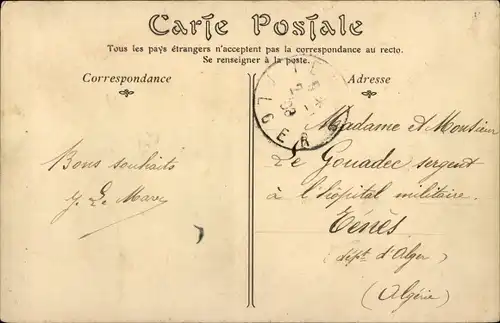 Carte Postale
Tous les pays étrangers n'acceptent pas la correspondance au recto.
Se renseigner à la poste.
Correspondance
Adresse
Bons souhaits
Y. Le Mare
Madame et Monsieur
Le Gouadec sergent
à l'hôpital militaire.
Ténès
(dépt d'Alger)
(Algérie)